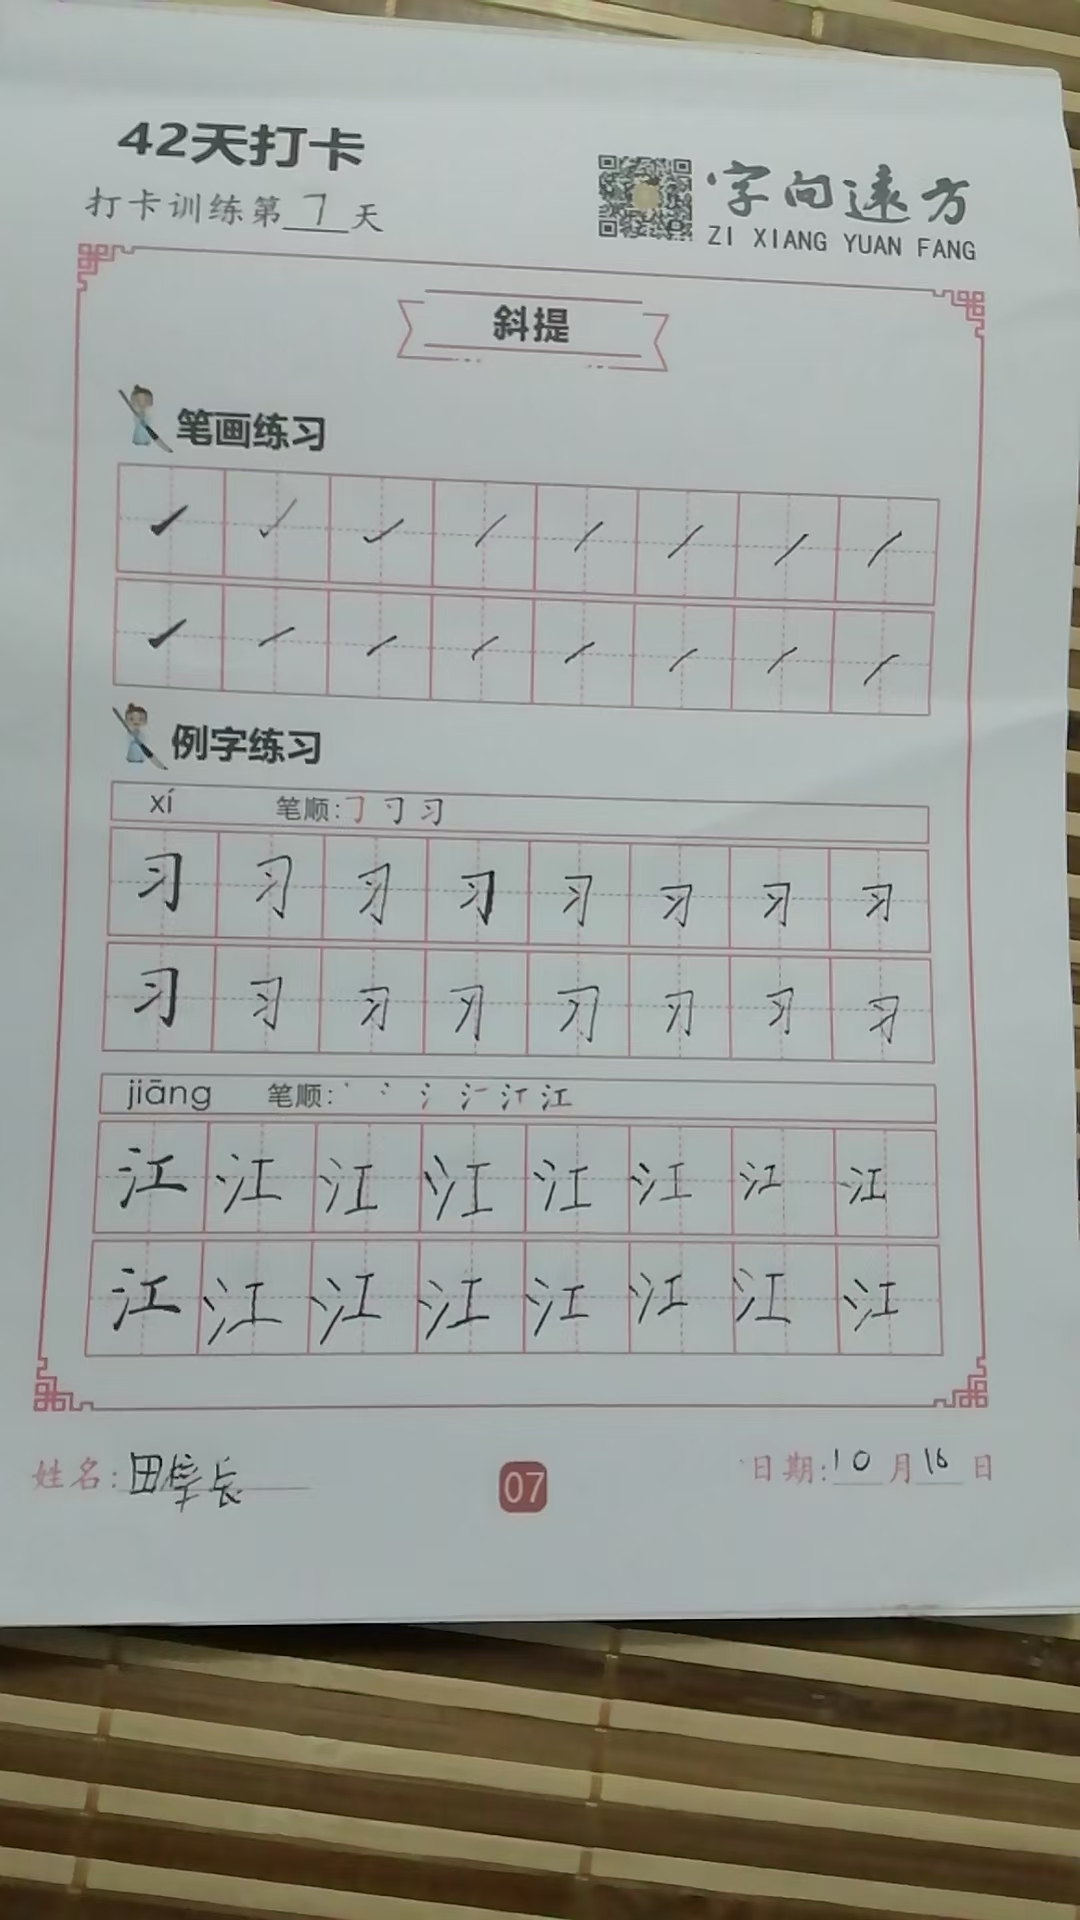 42天打卡
打卡训练第7天
字向远方
ZI XIANG YUAN FANG
斜提
笔画练习
例字练习
xí 笔顺:
习 习 习 习 习 习 习 习
习 习 习 习 习 习 习 习
jiāng 笔顺: 江
江 江 江 江 江 江 江 江
江 江 江 江 江 江 江 江
姓名:田 长
07
日期:10月16日